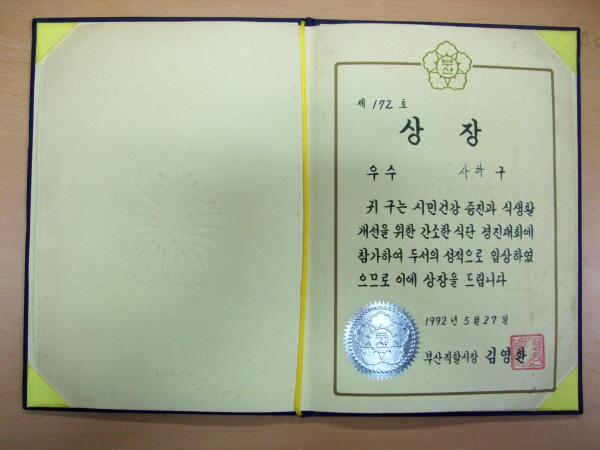 부산
제 172 호
상 장
우수 사하 구
귀 구는 시민건강 증진과 식생활
개선을 위한 간소한 식단 경진대회에
참가하여 두서의 성적으로 입상하였
으므로 이에 상장을 드립니다
1992 년 5 월 27 일
부산
부산직할시장 김영환